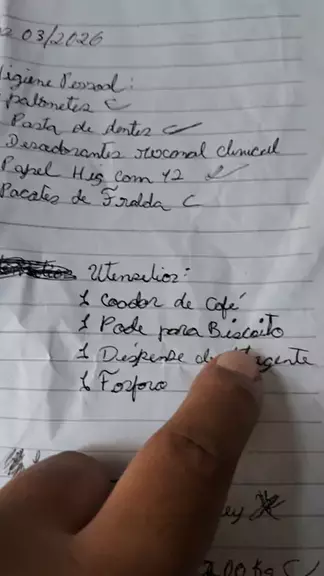 03/2026
igiene Pessoal:
palonetes C
Pasta de dentes
Desodorantes rexonal clinical
Papel Hig com 12
Pacotes de Fralda C
Utensilios:
1 Coador de Café
1 Pode para Biscoito
1 Dispense de
1 Fosforo